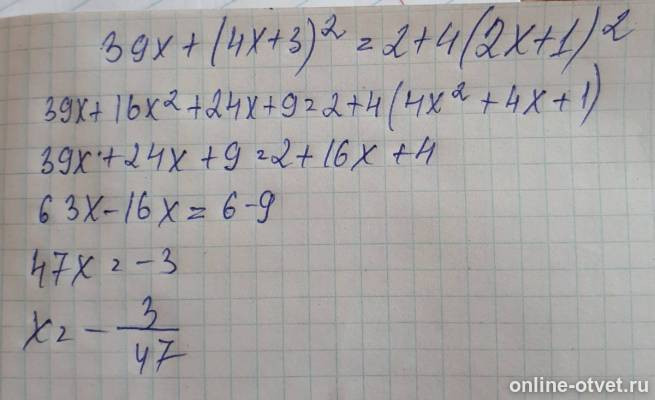 39x + (4x+3)² = 2+4(2x+1)²
39x+16x²+24x+9=2+4(4x²+4x+1)
39x+24x+9=2+16x+4
63x-16x=6-9
47x=-3
x=-3/47
online-otvet.ru